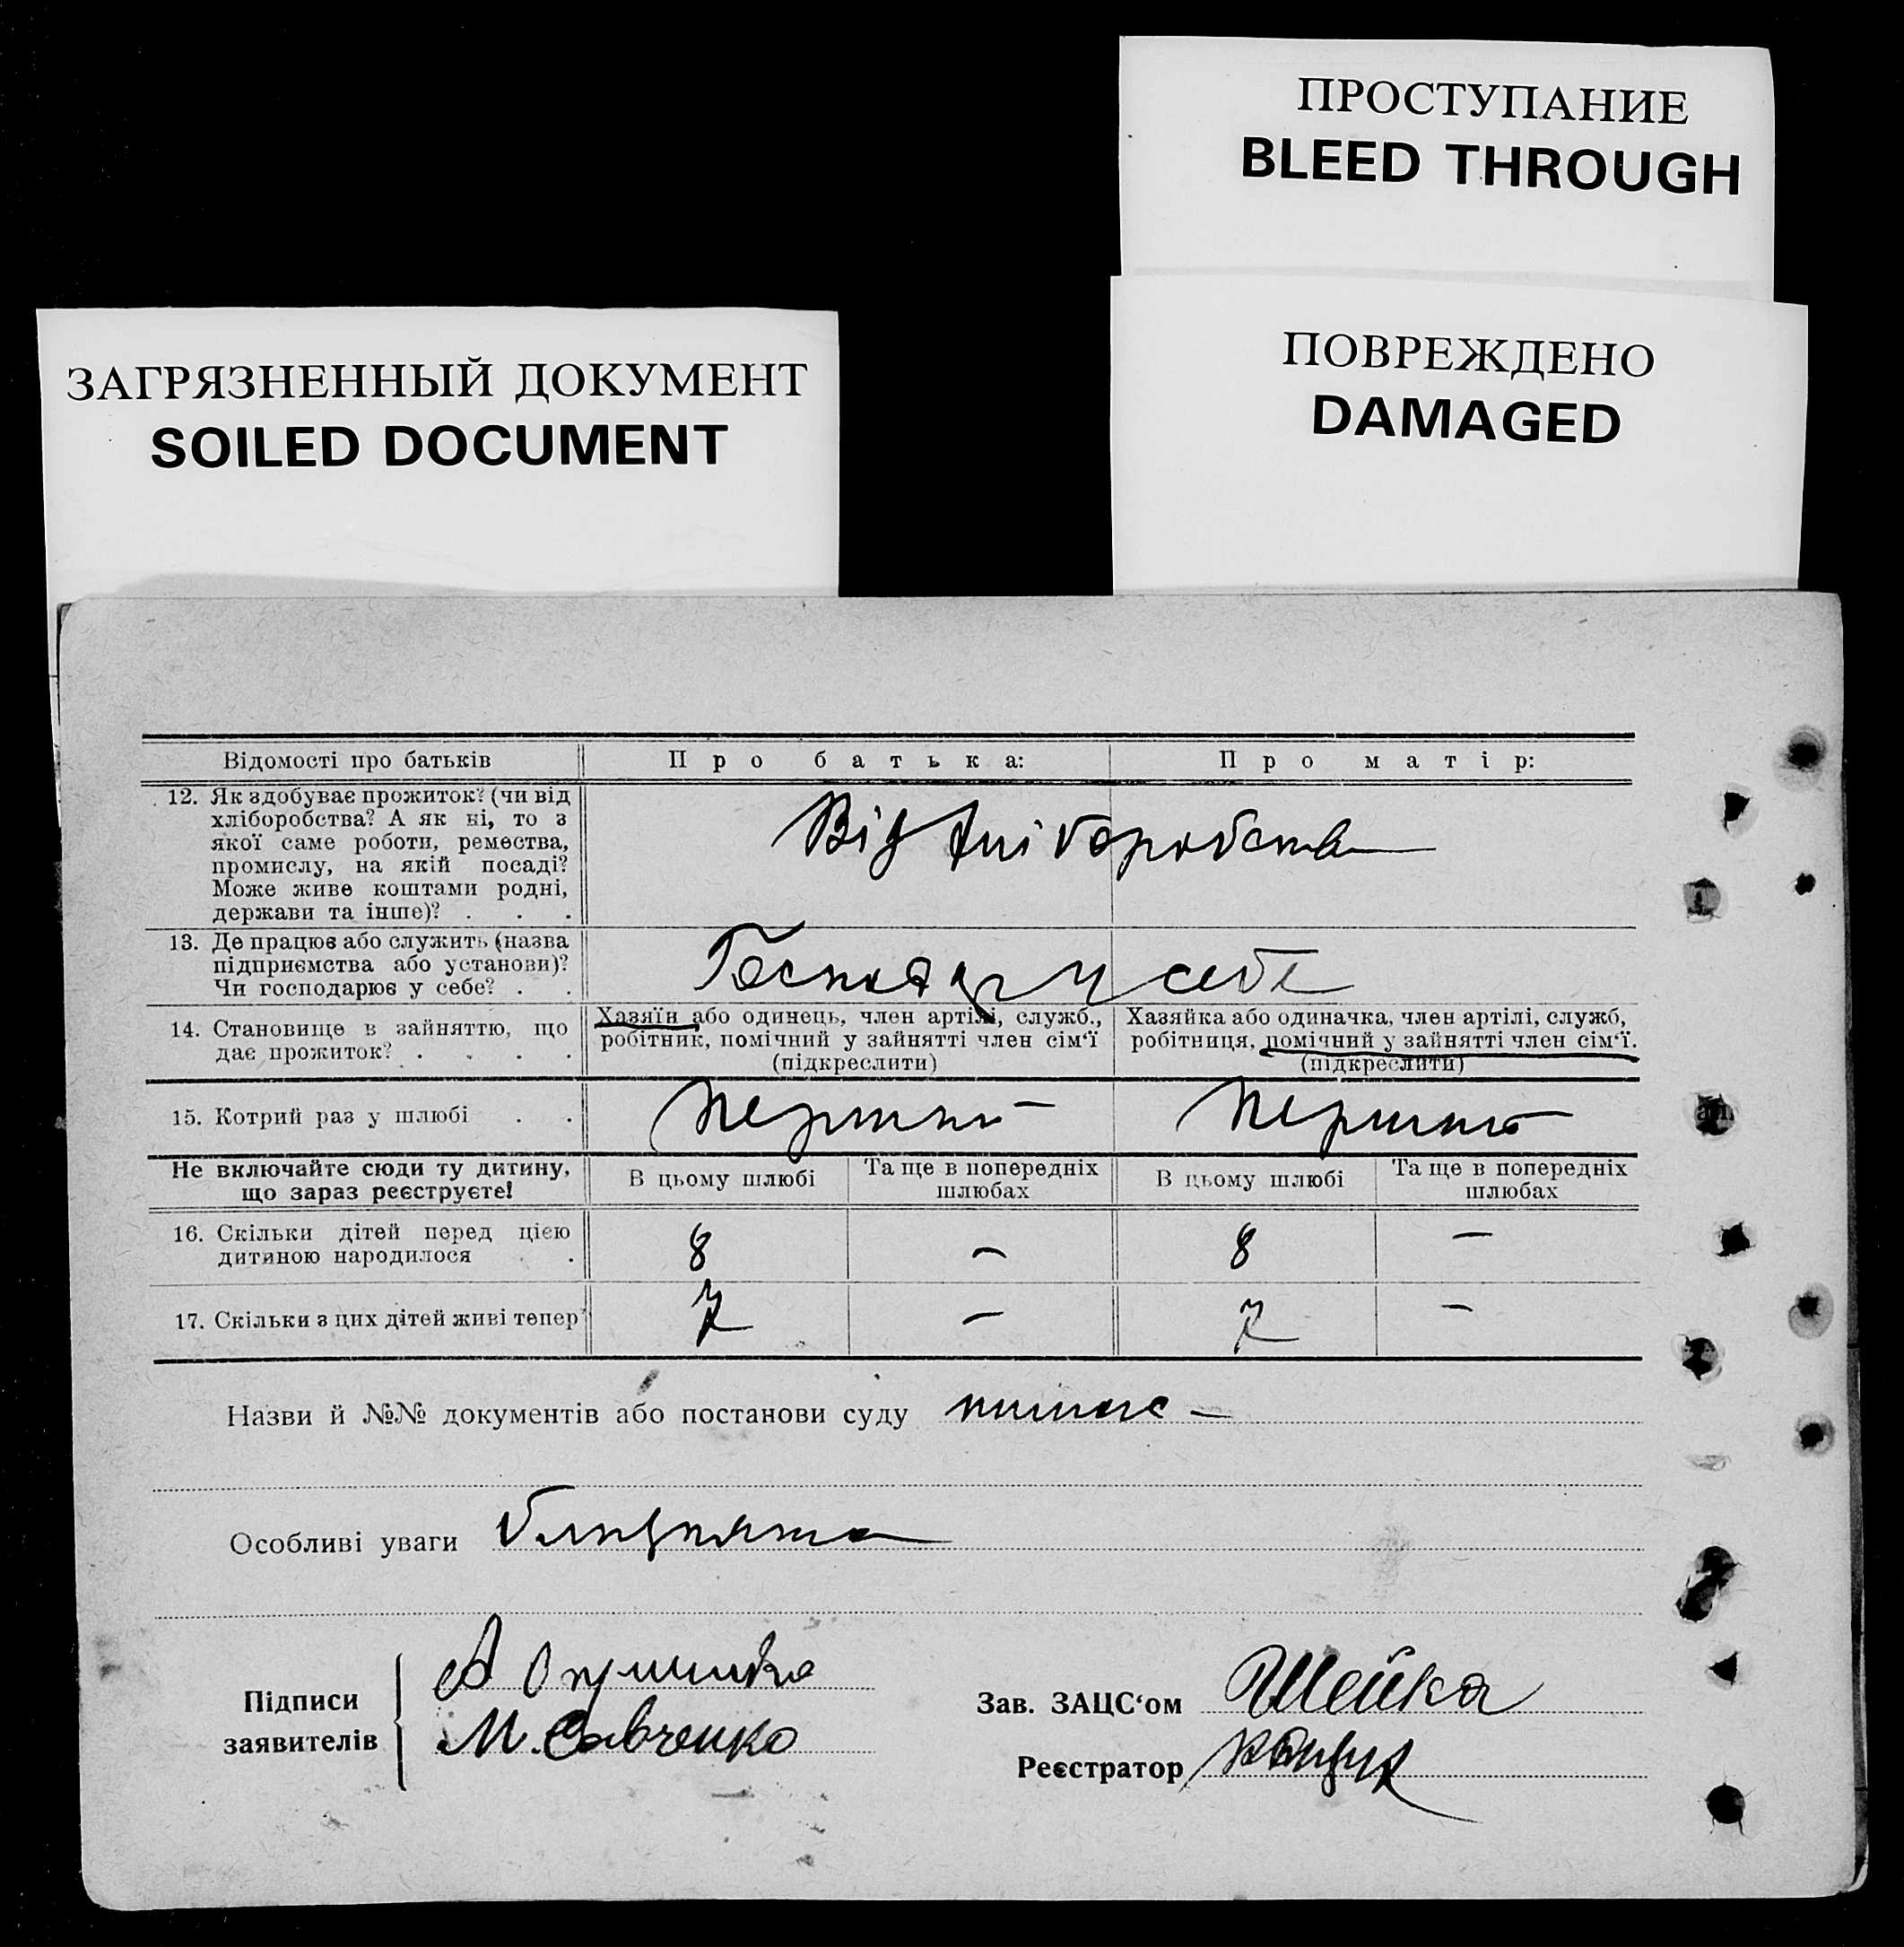 ПРОСТУПАНИЕ
BLEED THROUGH
ПОВРЕЖДЕНО
DAMAGED
ЗАГРЯЗНЕННЫЙ ДОКУМЕНТ
SOILED DOCUMENT
Відомості про батьків
Про батька:
Про матір:
12. Як здобуває прожиток? (чи від
хліборобства? А як ні, то з
якої саме роботи, ремества,
промислу, на якій посаді?
Може живе коштами родні,
держави та інше)? . . .
Від хліборобства
13. Де працює або служить (назва
підприємства або установи)?
Чи господарює у себе? . .
Господар у себе
14. Становище в зайняттю, що
дає прожиток? . . . .
Хазяїн або одинець, член артілі, служб.,
робітник, помічний у зайнятті член сім'ї
(підкреслити)
Хазяйка або одиначка, член артілі, служб,
робітниця, помічний у зайнятті член сім'ї.
(підкреслити)
15. Котрий раз у шлюбі . .
Перший
Перший
Не включайте сюди ту дитину,
що зараз реєструєте!
В цьому шлюбі
Та ще в попередніх
шлюбах
В цьому шлюбі
Та ще в попередніх
шлюбах
16. Скільки дітей перед цією
дитиною народилося .
8 — 8 —
17. Скільки з цих дітей живі тепер?
7 — 7 —
Назви й №№ документів або постанови суду
Особливі уваги
Підписи
заявителів
М. Савченко
Зав. ЗАЦС'ом Шейка
Реєстратор